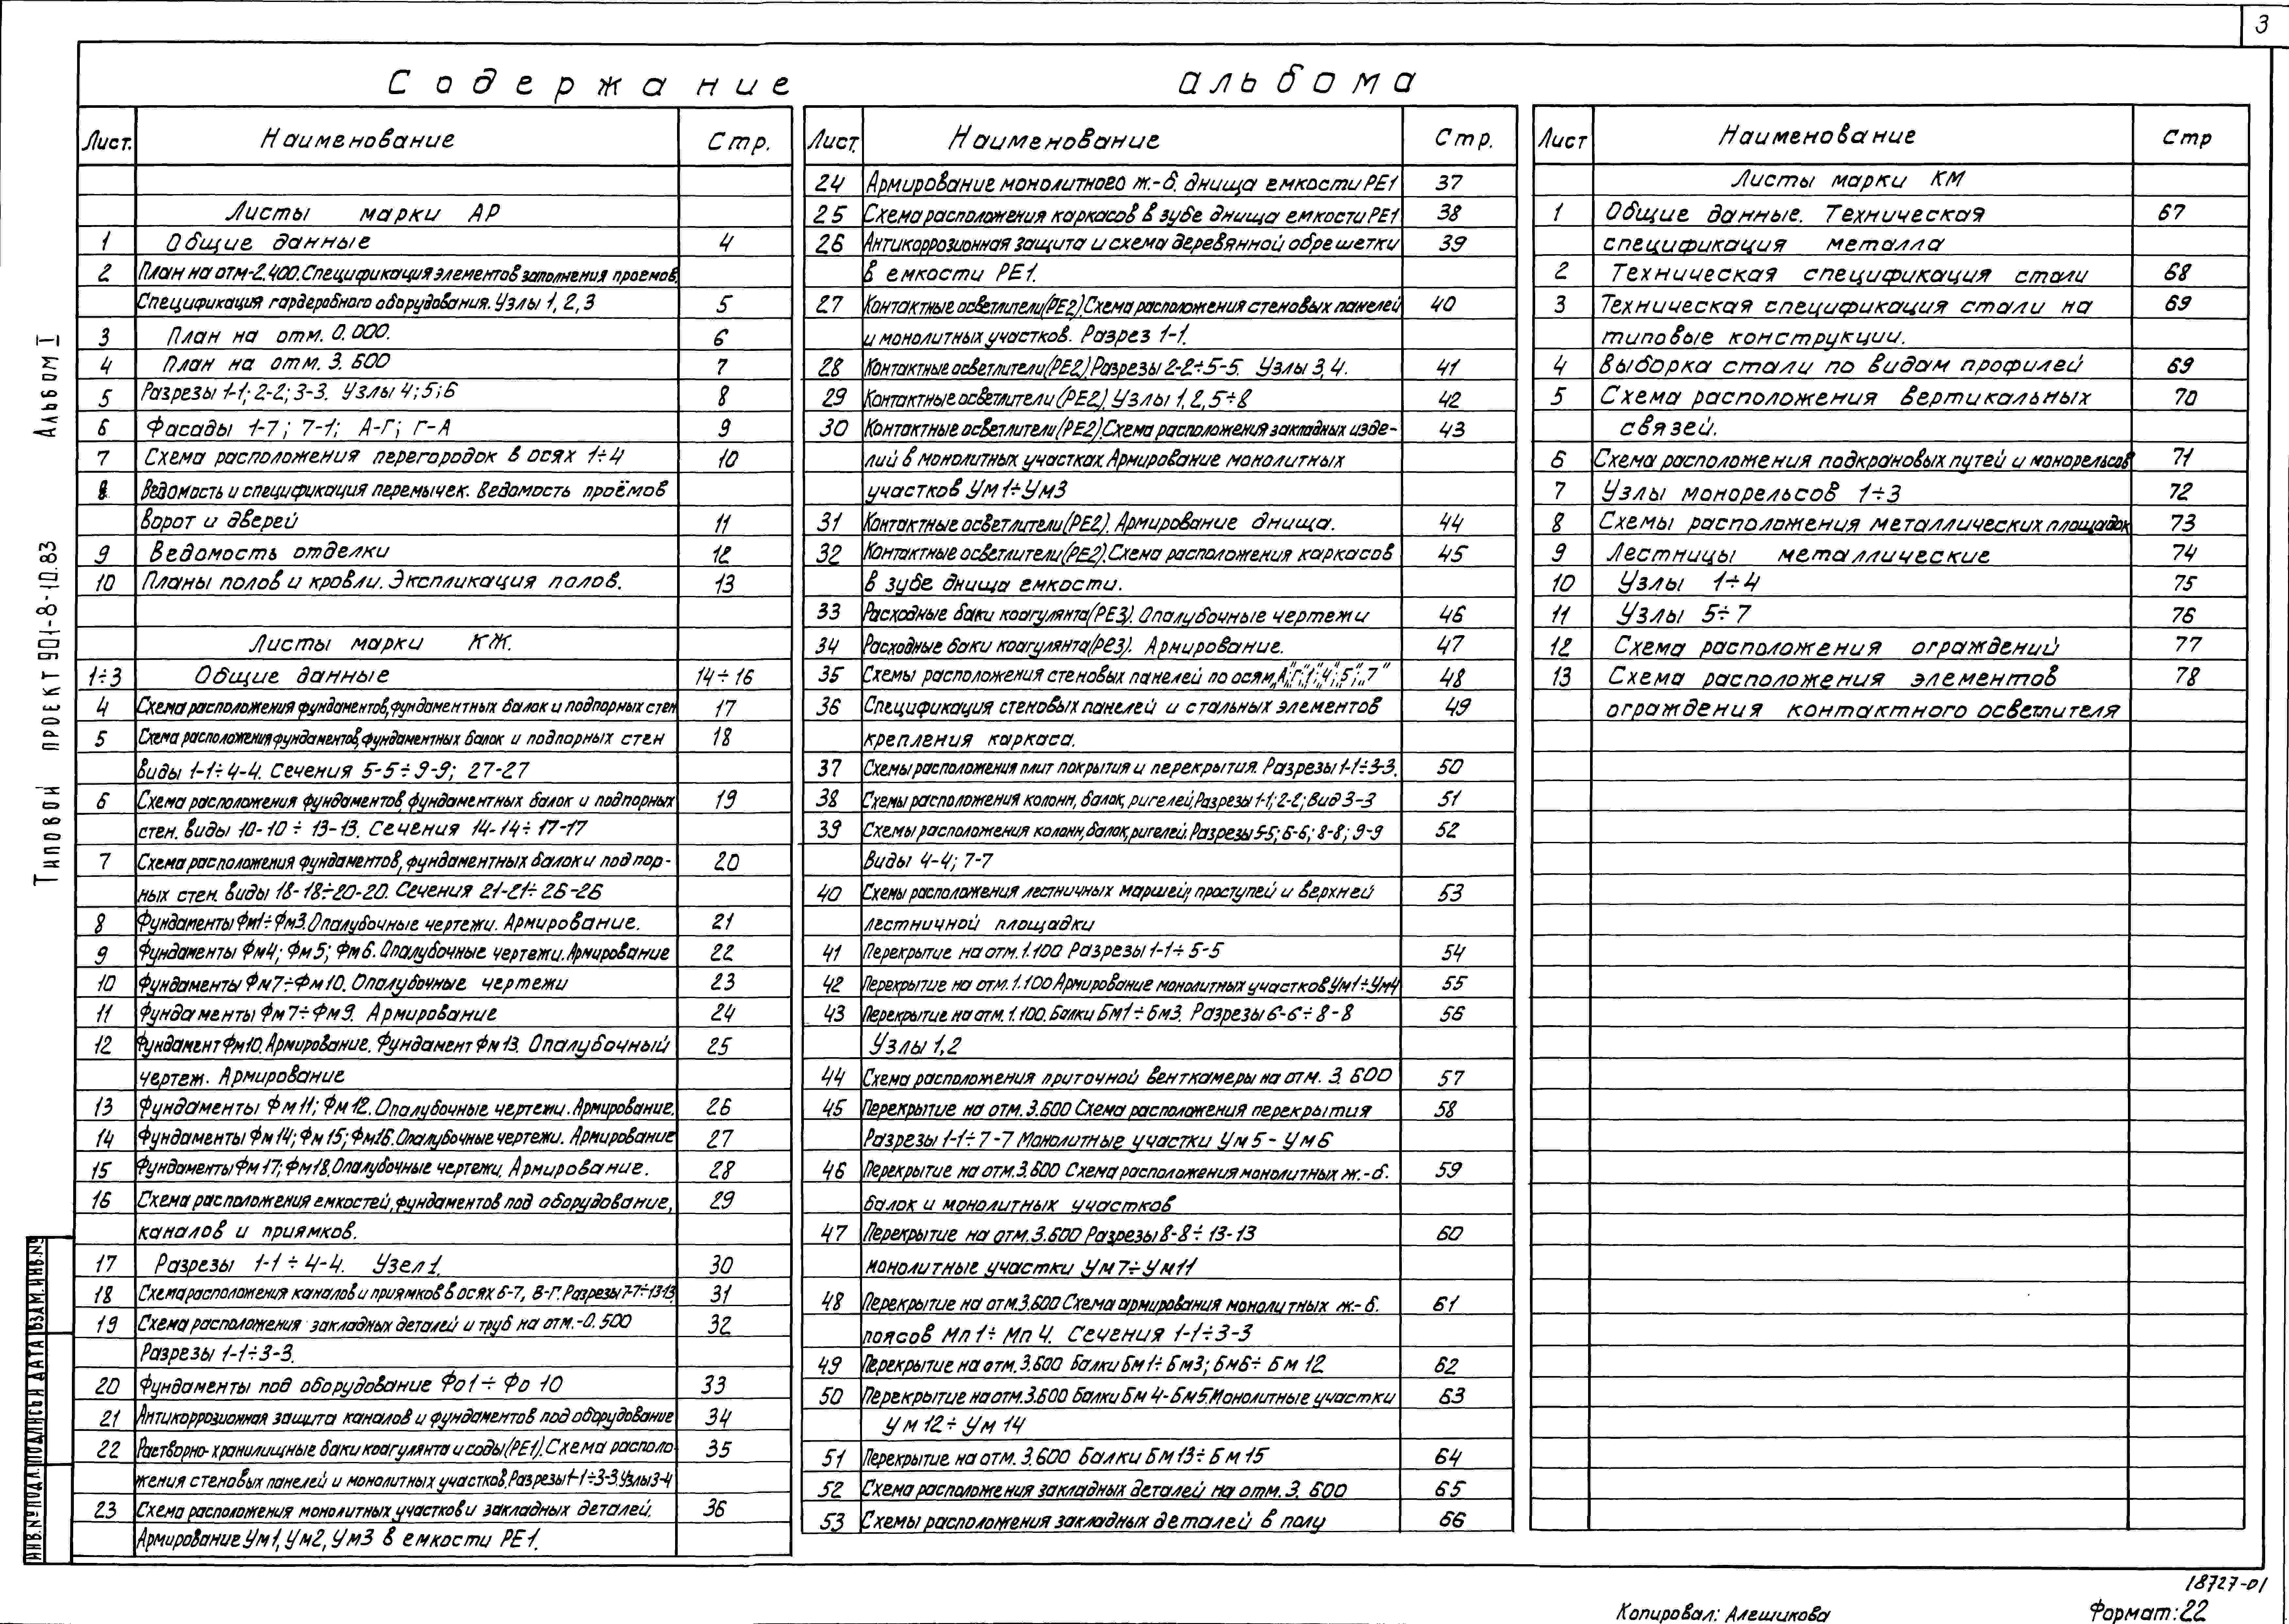 3
Содержание альбома
Лист. Наименование Стр.
Листы марки АР
1 Общие данные 4
2 План на отм-2.400. Спецификация элементов заполнения проемов.
Спецификация гардеробного оборудования. Узлы 1, 2, 3 5
3 План на отм. 0.000. 6
4 План на отм. 3.600 7
5 Разрезы 1-1; 2-2; 3-3. Узлы 4; 5; 6 8
6 Фасады 1-7; 7-1; А-Г; Г-А 9
7 Схема расположения перегородок в осях 1÷4 10
8 Ведомость и спецификация перемычек. Ведомость проёмов
ворот и дверей 11
9 Ведомость отделки 12
10 Планы полов и кровли. Экспликация полов. 13
Листы марки КЖ.
1÷3 Общие данные 14÷16
4 Схема расположения фундаментов, фундаментных балок и подпорных стен 17
5 Схема расположения фундаментов, фундаментных балок и подпорных стен 18
виды 1-1÷4-4. Сечения 5-5÷9-9; 27-27
6 Схема расположения фундаментов, фундаментных балок и подпорных 19
стен. виды 10-10÷13-13. Сечения 14-14÷17-17
7 Схема расположения фундаментов, фундаментных балок и подпор- 20
ных стен. виды 18-18÷20-20. Сечения 21-21÷26-26
8 Фундаменты Фм1÷Фм3. Опалубочные чертежи. Армирование. 21
9 Фундаменты Фм4; Фм5; Фм6. Опалубочные чертежи. Армирование 22
10 Фундаменты Фм7÷Фм10. Опалубочные чертежи 23
11 Фундаменты Фм7÷Фм9. Армирование 24
12 Фундамент Фм10. Армирование. Фундамент Фм13. Опалубочный 25
чертеж. Армирование
13 Фундаменты Фм11; Фм12. Опалубочные чертежи. Армирование. 26
14 Фундаменты Фм14; Фм15; Фм16. Опалубочные чертежи. Армирование 27
15 Фундаменты Фм17; Фм18. Опалубочные чертежи. Армирование. 28
16 Схема расположения емкостей, фундаментов под оборудование, 29
каналов и приямков.
17 Разрезы 1-1÷4-4. Узел 1. 30
18 Схема расположения каналов и приямков в осях 6-7, В-Г. Разрезы 7-7÷13-13 31
19 Схема расположения закладных деталей и труб на отм.-0.500 32
Разрезы 1-1÷3-3.
20 Фундаменты под оборудование Фо1÷Фо10 33
21 Антикоррозионная защита каналов и фундаментов под оборудование 34
22 Растворно-хранилищные баки коагулянта и соды (РЕ1). Схема располо- 35
жения стеновых панелей и монолитных участков. Разрезы 1-1÷3-3 Узлы 3-4
23 Схема расположения монолитных участков и закладных деталей. 36
Армирование Ум1, Ум2, Ум3 в емкости РЕ1.
Лист. Наименование Стр.
24 Армирование монолитного ж.-б. днища емкости РЕ1 37
25 Схема расположения каркасов в зубе днища емкости РЕ1 38
26 Антикоррозионная защита и схема деревянной обрешетки 39
в емкости РЕ1.
27 Контактные осветлители (РЕ2). Схема расположения стеновых панелей 40
и монолитных участков. Разрез 1-1.
28 Контактные осветлители (РЕ2). Разрезы 2-2÷5-5. Узлы 3, 4. 41
29 Контактные осветлители (РЕ2). Узлы 1, 2, 5÷8 42
30 Контактные осветлители (РЕ2). Схема расположения закладных изде- 43
лий в монолитных участках. Армирование монолитных
участков Ум1÷Ум3
31 Контактные осветлители (РЕ2). Армирование днища. 44
32 Контактные осветлители (РЕ2). Схема расположения каркасов 45
в зубе днища емкости.
33 Расходные баки коагулянта (РЕ3). Опалубочные чертежи 46
34 Расходные баки коагулянта (РЕ3). Армирование. 47
35 Схемы расположения стеновых панелей по осям „А"; „Г"; „1"; „4"; „5"; „7" 48
36 Спецификация стеновых панелей и стальных элементов 49
крепления каркаса.
37 Схемы расположения плит покрытия и перекрытия. Разрезы 1-1÷3-3. 50
38 Схемы расположения колонн, балок, ригелей. Разрезы 1-1; 2-2; Вид 3-3 51
39 Схемы расположения колонн, балок, ригелей. Разрезы 5-5; 6-6; 8-8; 9-9 52
Виды 4-4; 7-7
40 Схемы расположения лестничных маршей, проступей и верхней 53
лестничной площадки
41 Перекрытие на отм. 1.100 Разрезы 1-1÷5-5 54
42 Перекрытие на отм. 1.100 Армирование монолитных участков Ум1÷Ум4 55
43 Перекрытие на отм. 1.100. Балки Бм1÷Бм3. Разрезы 6-6÷8-8 56
Узлы 1, 2
44 Схема расположения приточной венткамеры на отм. 3.600 57
45 Перекрытие на отм. 3.600 Схема расположения перекрытия 58
Разрезы 1-1÷7-7 Монолитные участки Ум5-Ум6
46 Перекрытие на отм. 3.600 Схема расположения монолитных ж.-б. 59
балок и монолитных участков
47 Перекрытие на отм. 3.600 Разрезы 8-8÷13-13 60
монолитные участки Ум7÷Ум11
48 Перекрытие на отм. 3.600 Схема армирования монолитных ж.-б. 61
поясов Мп1÷Мп4. Сечения 1-1÷3-3
49 Перекрытие на отм. 3.600 Балки Бм1÷Бм3; Бм6÷Бм12 62
50 Перекрытие на отм. 3.600 Балки Бм4-Бм5. Монолитные участки 63
Ум12÷Ум14
51 Перекрытие на отм. 3.600 Балки Бм13÷Бм15 64
52 Схема расположения закладных деталей на отм. 3.600 65
53 Схемы расположения закладных деталей в полу 66
Лист Наименование Стр
Листы марки КМ
1 Общие данные. Техническая 67
спецификация металла
2 Техническая спецификация стали 68
3 Техническая спецификация стали на 69
типовые конструкции.
4 Выборка стали по видам профилей 69
5 Схема расположения вертикальных 70
связей.
6 Схема расположения подкрановых путей и монорельсов 71
7 Узлы монорельсов 1÷3 72
8 Схемы расположения металлических площадок 73
9 Лестницы металлические 74
10 Узлы 1÷4 75
11 Узлы 5÷7 76
12 Схема расположения ограждений 77
13 Схема расположения элементов 78
ограждения контактного осветлителя
Типовой проект 901-8-10.83 Альбом I
ИНВ.№ПОДЛ. ПОДПИСЬ И ДАТА ВЗАМ.ИНВ.№
18727-01
Копировал: Алешикова
Формат: 22